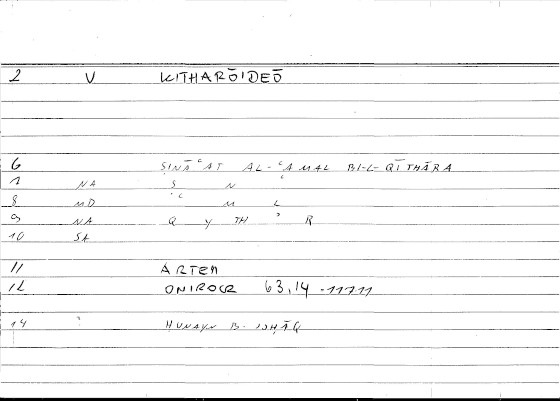 2 V KITHARŌIDEŌ
6 ṢINĀʿAT AL-ʿAMAL BI-L-QĪTHĀRA
7 NA Ṣ N ʿ
8 MD ʿ M L
9 NA Q Y TH ʾ R
10 SA
11 ARTEM
12 ONIROCR 63,14 -11711
14 HUNAYN B- ISḤĀQ